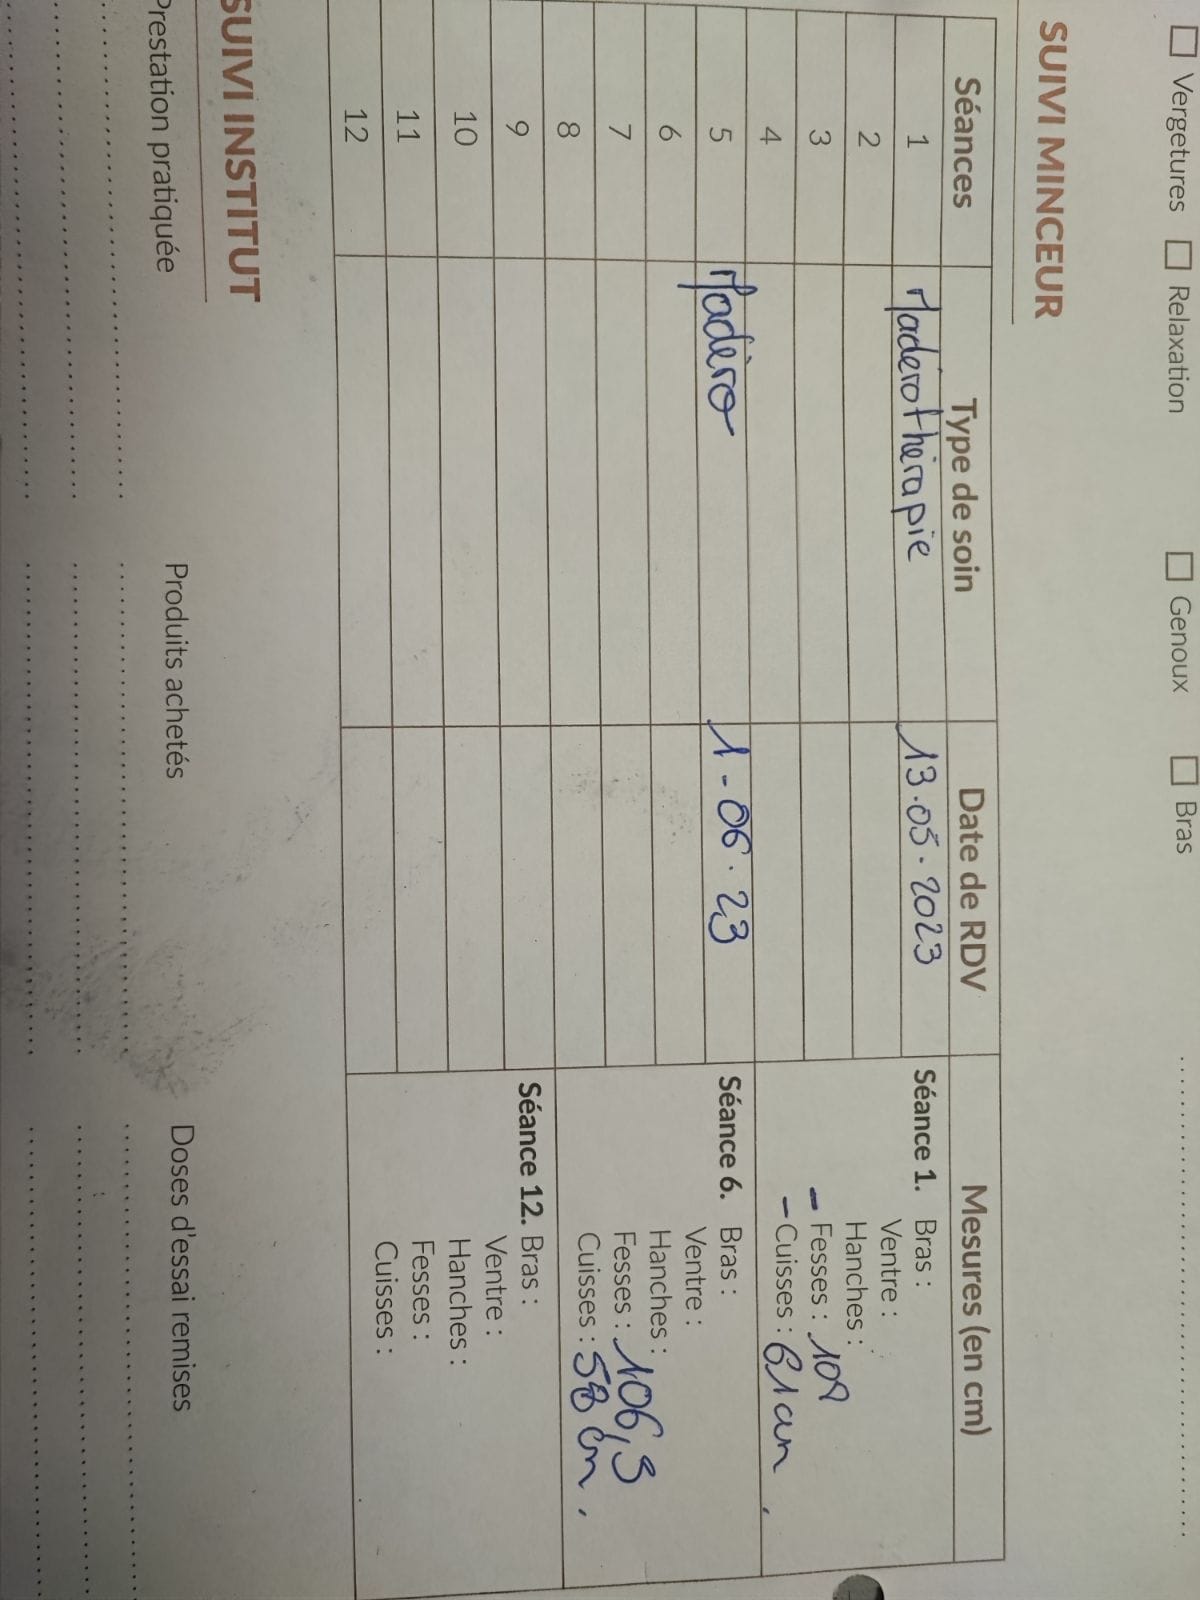 ☐ Vergetures ☐ Relaxation ☐ Genoux ☐ Bras
SUIVI MINCEUR
Séances Type de soin Date de RDV Mesures (en cm)
1 Madérothérapie 13.05.2023 Séance 1. Bras :
Ventre :
2 Hanches :
3 - Fesses : 109
4 - Cuisses : 61 cm
5 Madéro 1-06.23 Séance 6. Bras :
Ventre :
6 Hanches :
7 Fesses : 106,3
8 Cuisses : 58 cm.
9 Séance 12. Bras :
Ventre :
10 Hanches :
11 Fesses :
12 Cuisses :
SUIVI INSTITUT
Prestation pratiquée Produits achetés Doses d'essai remises